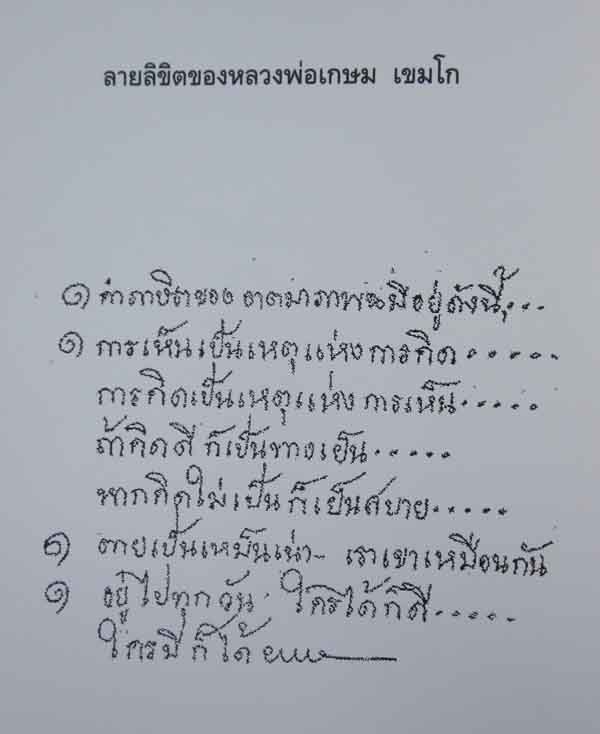 ลายลิขิตของหลวงพ่อเกษม เขมโก
๑ คำภาษิตของ อาตมาภาพนมีอยู่ดังนี้....
๑ การเห็นเป็นเหตุแห่งการคิด.....
การคิดเป็นเหตุแห่งการเห็น.....
ถ้าคิดดี ก็เป็นทางเย็น.....
หากคิดไม่เป็น ก็เย็นสบาย.....
๑ ตายเป็นเหม็นเน่า.. เราเขาเหมือนกัน
๑ อยู่ไปทุกวัน ใครได้ก็ดี.....
ใครมีก็ได้